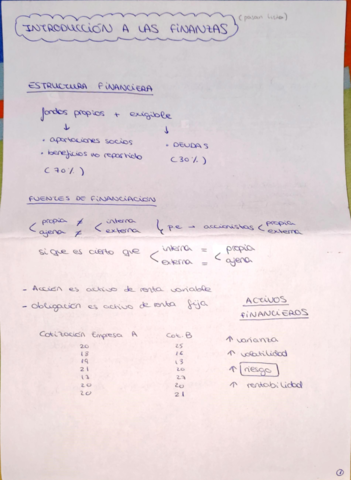 INTRODUCCIÓN A LAS FINANZAS
ESTRUCTURA FINANCIERA
fondos propios + exigible
↓ ↓
· aportaciones socios · DEUDAS
· beneficios no repartido (30%)
(70%)
FUENTES DE FINANCIACIÓN
propia ≠ interna p.e → accionistas propia
ajena ≠ externa externa
si que es cierto que interna = propia
externa = ajena
- Acción es activo de renta variable
- obligación es activo de renta fija
ACTIVOS FINANCIEROS
Cotización Empresa A Cot. B
20 25
18 16
19 13
21 10
17 27
20 20
20 21
↑ varianza
↑ volatilidad
↑ riesgo
↑ rentabilidad